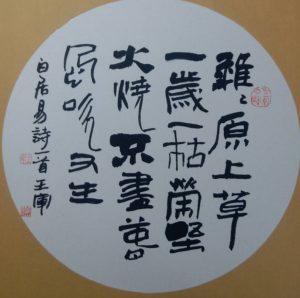 離〻原上草
一歲一枯榮野
火燒不盡春
風吹又生
白居易詩一首王軍